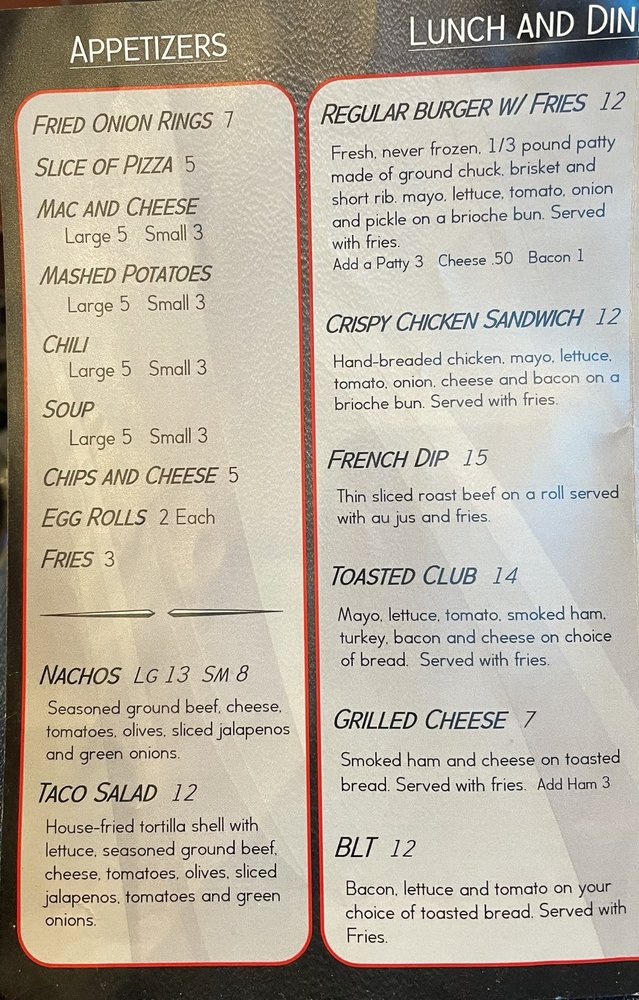 APPETIZERS
FRIED ONION RINGS 7
SLICE OF PIZZA 5
MAC AND CHEESE
Large 5 Small 3
MASHED POTATOES
Large 5 Small 3
CHILI
Large 5 Small 3
SOUP
Large 5 Small 3
CHIPS AND CHEESE 5
EGG ROLLS 2 Each
FRIES 3
NACHOS LG 13 SM 8
Seasoned ground beef, cheese,
tomatoes, olives, sliced jalapenos
and green onions.
TACO SALAD 12
House-fried tortilla shell with
lettuce, seasoned ground beef,
cheese, tomatoes, olives, sliced
jalapenos, tomatoes and green
onions.
LUNCH AND DIN
REGULAR BURGER W/ FRIES 12
Fresh, never frozen, 1/3 pound patty
made of ground chuck, brisket and
short rib, mayo, lettuce, tomato, onion
and pickle on a brioche bun. Served
with fries.
Add a Patty 3 Cheese .50 Bacon 1
CRISPY CHICKEN SANDWICH 12
Hand-breaded chicken, mayo, lettuce,
tomato, onion, cheese and bacon on a
brioche bun. Served with fries.
FRENCH DIP 15
Thin sliced roast beef on a roll served
with au jus and fries.
TOASTED CLUB 14
Mayo, lettuce, tomato, smoked ham,
turkey, bacon and cheese on choice
of bread. Served with fries.
GRILLED CHEESE 7
Smoked ham and cheese on toasted
bread. Served with fries. Add Ham 3
BLT 12
Bacon, lettuce and tomato on your
choice of toasted bread. Served with
Fries.